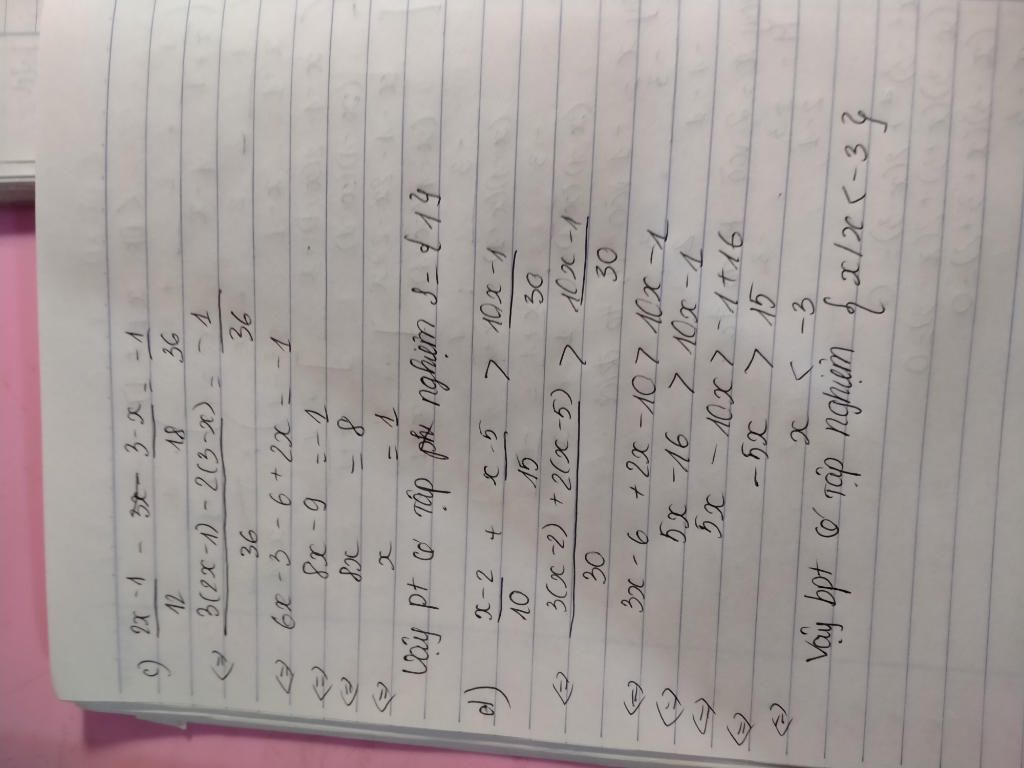 c) 2x-1/12 - 3-x/18 = -1/36
(=) 3(2x-1) - 2(3-x)/36 = -1/36
(=) 6x - 3 - 6 + 2x = -1
(=) 8x - 9 = -1
(=) 8x = 8
(=) x = 1
Vậy pt có tập nghiệm S = {1}
d) x-2/10 + x-5/15 > 10x-1/30
(=) 3(x-2) + 2(x-5)/30 > 10x-1/30
(=) 3x - 6 + 2x - 10 > 10x - 1
(=) 5x - 16 > 10x - 1
(=) 5x - 10x > -1 + 16
(=) -5x > 15
(=) x < -3
Vậy bpt có tập nghiệm {x/x < -3}